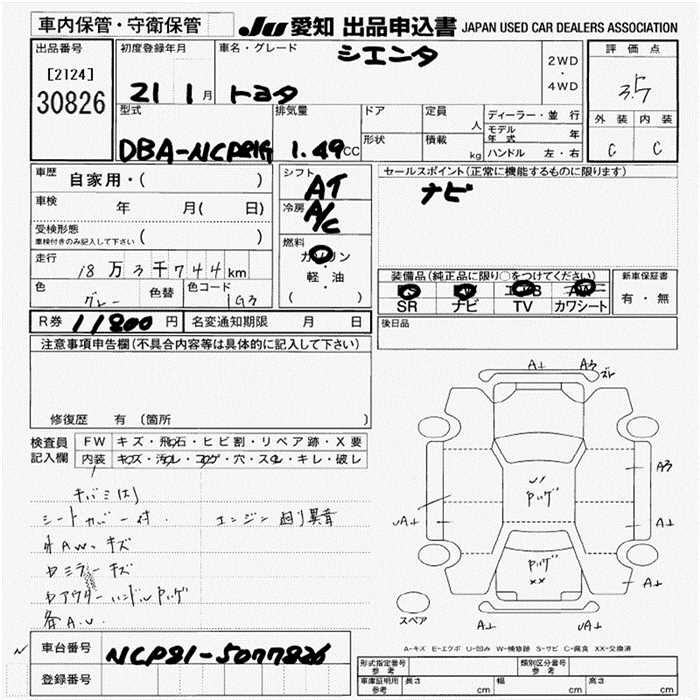 車内保管・守衛保管
JU 愛知 出品申込書 JAPAN USED CAR DEALERS ASSOCIATION
出品番号
[2124]
30826
初度登録年月
21 1月
車名・グレード
シエンタ
トヨタ
2WD
・
4WD
評価点
3.5
外装 内装
C C
型式
DBA-NCP81G
排気量
1.49CC
ドア
形状
定員
人
積載
kg
ディーラー・並行
モデル年式 年
ハンドル 左・右
車歴 自家用・( )
車検 年 月( 日)
受検形態
車検付きのみ記入して下さい ( )
走行
18万3千744km
色 グレー 色替 色コード 1G3
シフト AT
冷房 A/C
燃料
ガソリン
・
軽・油
( )
セールスポイント(正常に機能するものに限ります)
ナビ
装備品(純正品に限り○をつけてください)
PS PW エアB AW
SR ナビ TV カワシート
新車保証書
有・無
後日品
R券 11800円 名変通知期限 月 日
注意事項申告欄(不具合内容等は具体的に記入して下さい)
修復歴 有 (箇所 )
検査員記入欄
FW キズ・飛石・ヒビ割・リペア跡・X要
内装 キズ・汚れ・コゲ・穴・スレ・キレ・破レ
キバミ(ハ)
シートカバー付. エンジン廻り異音
外AW.キズ
ドミラーキズ
ドアウターハンドルPハゲ
各A.U.
A⊥ A3 ズレ
U1
Pハゲ
A3
UA⊥
A⊥
Pハゲ
××
A⊥
A⊥ UA⊥
スペア
A-キズ E-エクボ U-凹み W-補修跡 S-サビ C-腐食 XX-交換済
車台番号 NCP81-5077826
登録番号
形式指定番号
参考
類別区分番号
参考
車庫証明用
参考
長さ cm 幅 cm 高さ cm